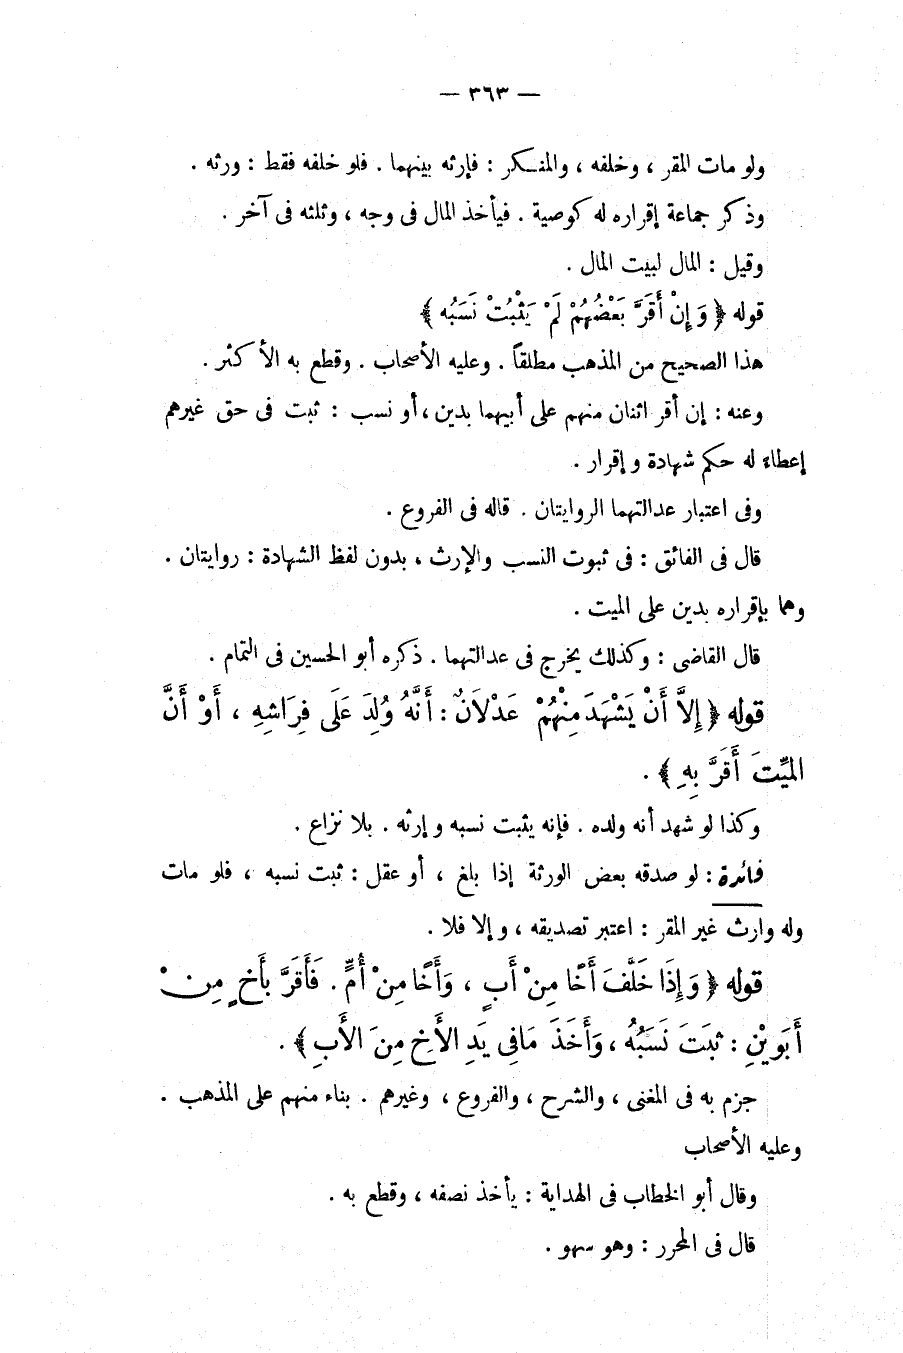 — ٣٦٣ —
ولو مات المقر ، وخلفه ، والمنكر : فإرثه بينهما . فلو خلفه فقط : ورثه .
وذكر جماعة إقراره له كوصية . فيأخذ المال فى وجه ، وثلثه فى آخر .
وقيل : المال لبيت المال .
قوله ﴿ وَإِنْ أَقَرَّ بَعْضُهُمْ لَمْ يَثْبُتْ نَسَبُه ﴾
هذا الصحيح من المذهب مطلقاً . وعليه الأصحاب . وقطع به الأكثر .
وعنه : إن أقر اثنان منهم على أبيهما بدين ، أو نسب : ثبت فى حق غيرهم
إعطاء له حكم شهادة وإقرار .
وفى اعتبار عدالتهما الروايتان . قاله فى الفروع .
قال فى الفائق : فى ثبوت النسب والإرث ، بدون لفظ الشهادة : روايتان .
وهما بإقراره بدين على الميت .
قال القاضى : وكذلك يخرج فى عدالتهما . ذكره أبو الحسين فى التمام .
قوله ﴿ إِلاَّ أَنْ يَشْهَدَ مِنْهُمْ عَدْلاَنٌ : أَنَّهُ وُلِدَ عَلَى فِرَاشِهِ ، أَوْ أَنَّ
المَيِّتَ أَقَرَّ بِهِ ﴾ .
وكذا لو شهد أنه ولده . فإنه يثبت نسبه وإرثه . بلا نزاع .
فائدة : لو صدقه بعض الورثة إذا بلغ ، أو عقل : ثبت نسبه ، فلو مات
وله وارث غير المقر : اعتبر تصديقه ، وإلا فلا .
قوله ﴿ وَإِذَا خَلَّفَ أَخًا مِنْ أَبٍ ، وَأَخًا مِنْ أُمٍّ . فَأَقَرَّ بِأَخٍ مِنْ
أَبَوَيْنِ : ثَبَتَ نَسَبُهُ ، وَأَخَذَ مَافِى يَدِ الأَخِ مِنَ الأَبِ ﴾ .
جزم به فى المغنى ، والشرح ، والفروع ، وغيرهم . بناء منهم على المذهب .
وعليه الأصحاب
وقال أبو الخطاب فى الهداية : يأخذ نصفه ، وقطع به .
قال فى المحرر : وهو سهو .